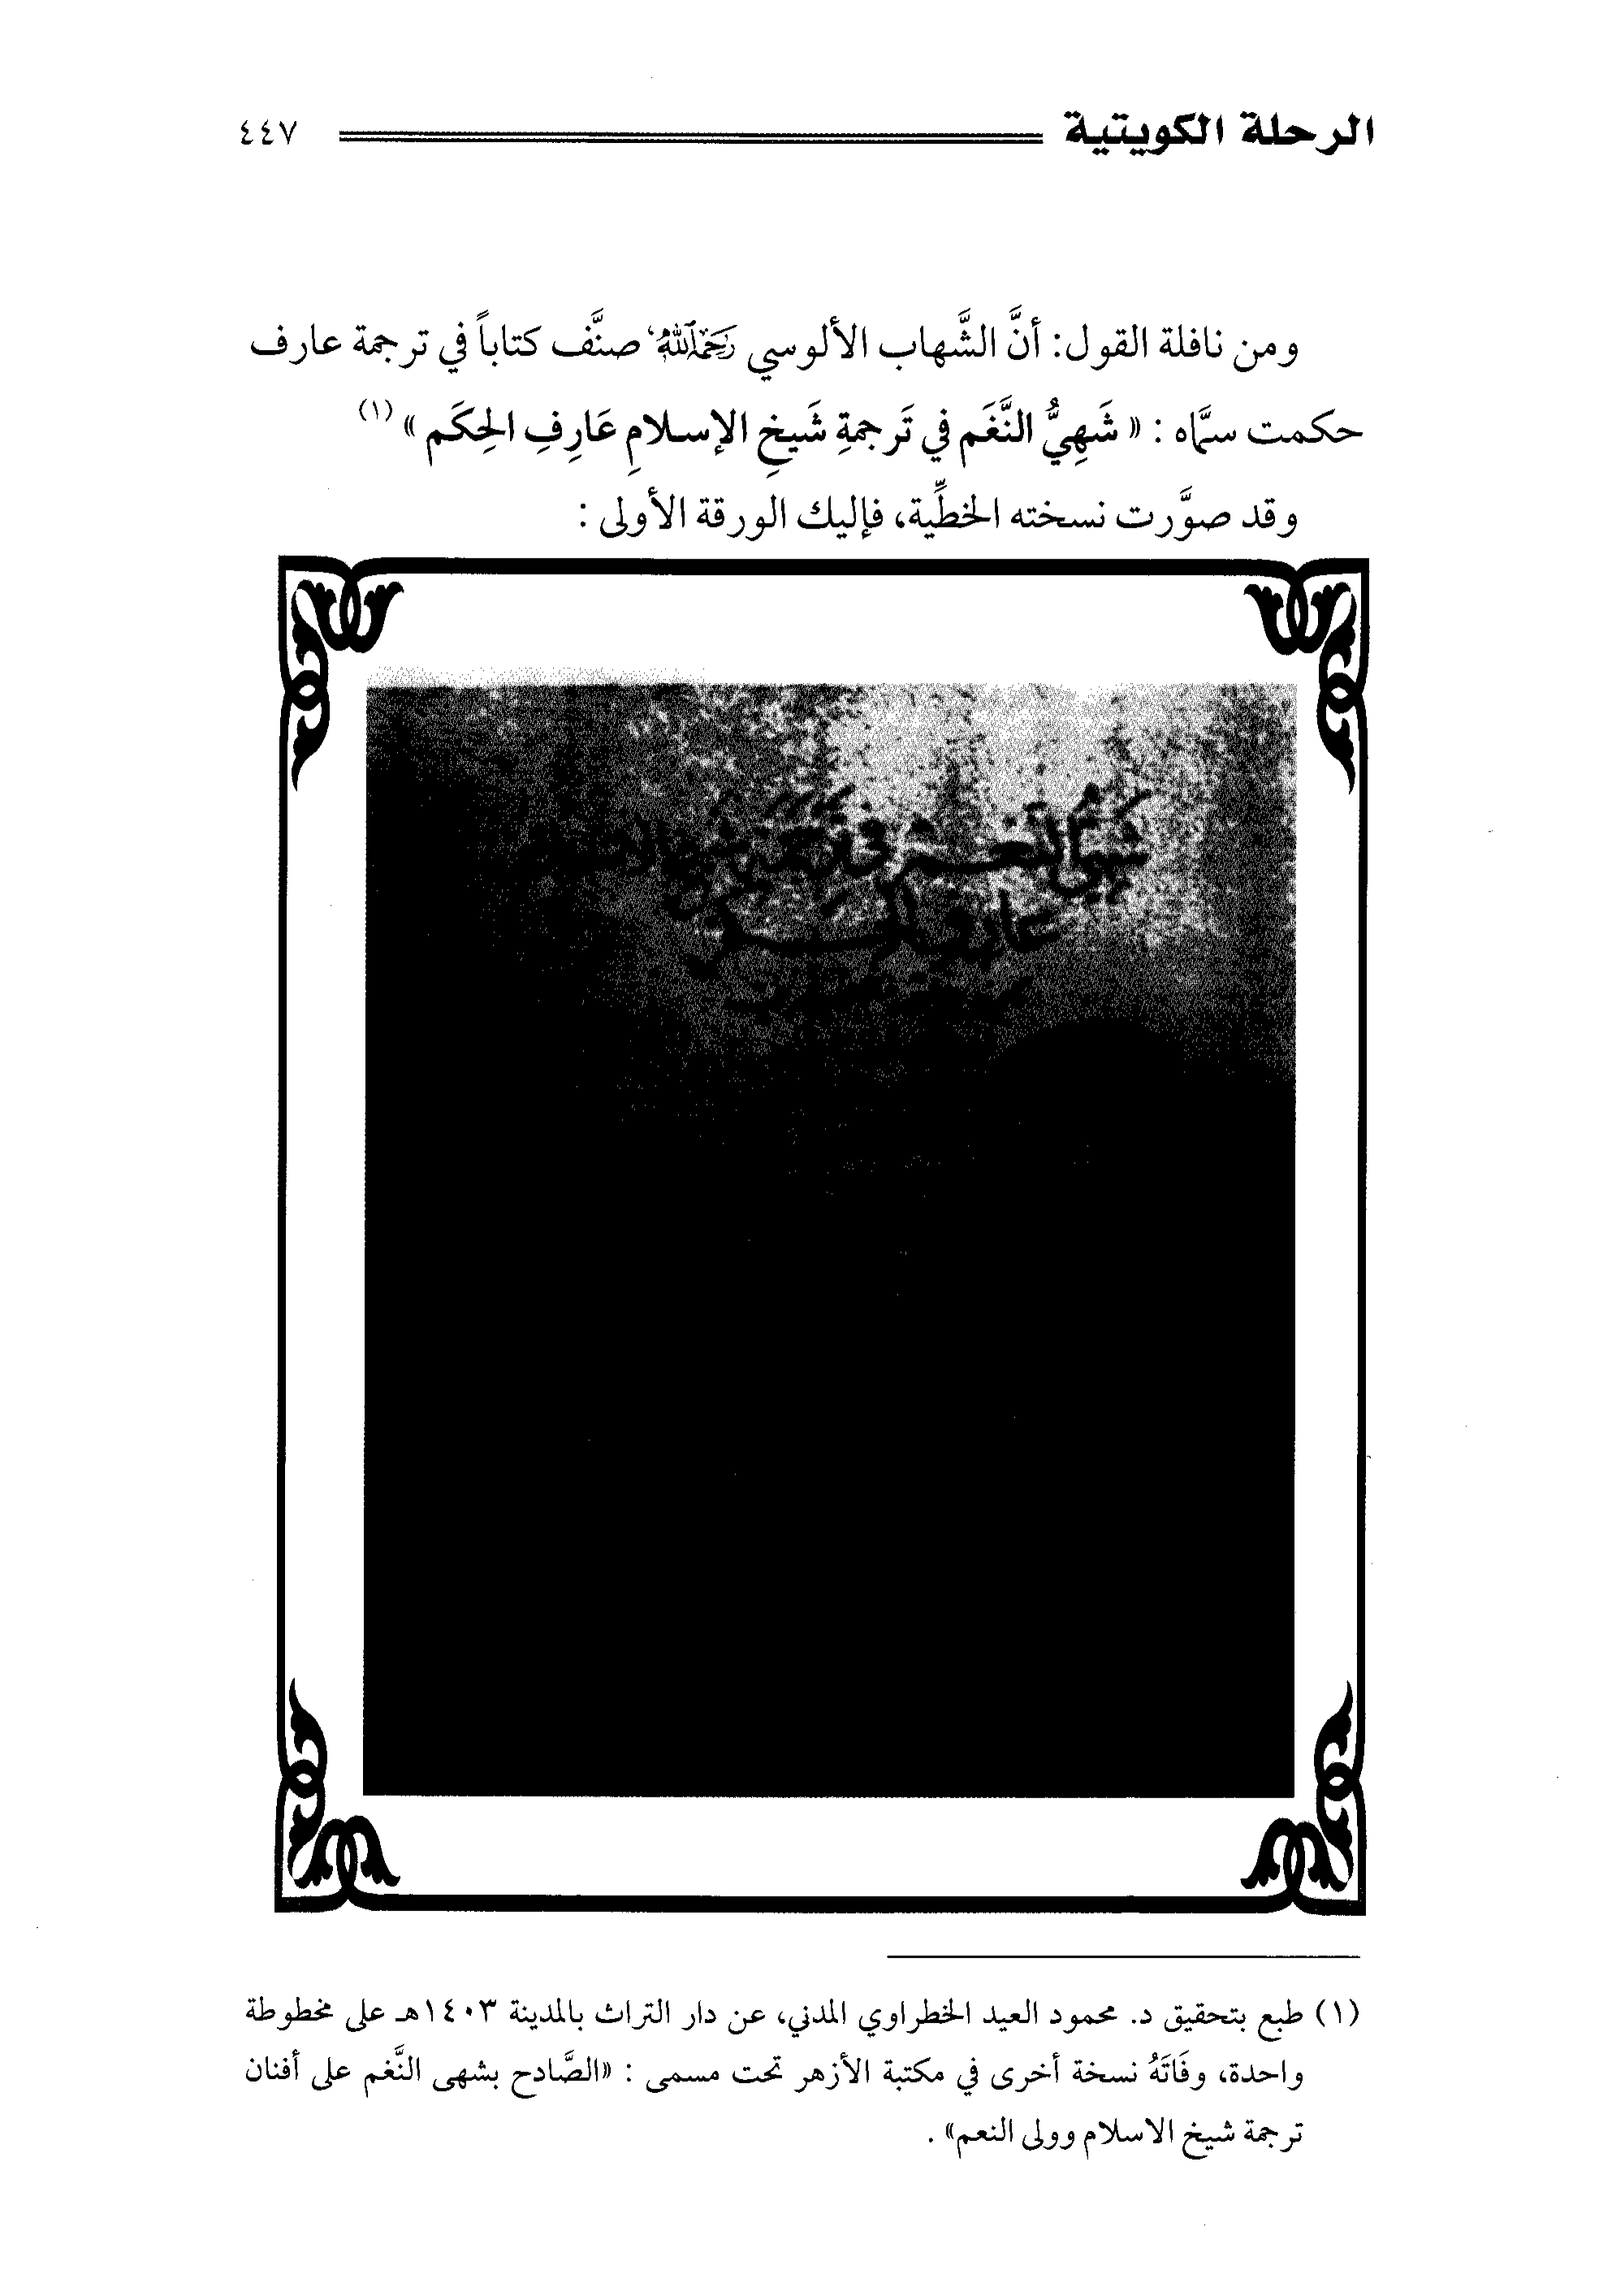 الرحلة الكويتية ٤٤٧
ومن نافلة القول: أنَّ الشَّهاب الألوسي رَحِمَهُ اللهُ صنَّف كتاباً في ترجمة عارف
حكمت سمَّاه : « شَهِيُّ النَّغَم في تَرجمةِ شَيخِ الإسلامِ عَارِفِ الحِكَم » (١)
وقد صوَّرت نسخته الخطِّية، فإليك الورقة الأولى :
شهي النغم في ترجمة شيخ الاسلام
عارف الحكم
(١) طبع بتحقيق د. محمود العيد الخطراوي المدني، عن دار التراث بالمدينة ١٤٠٣هـ على مخطوطة
واحدة، وفَاتَهُ نسخة أخرى في مكتبة الأزهر تحت مسمى : «الصَّادح بشهى النَّغم على أفنان
ترجمة شيخ الاسلام وولى النعم» .